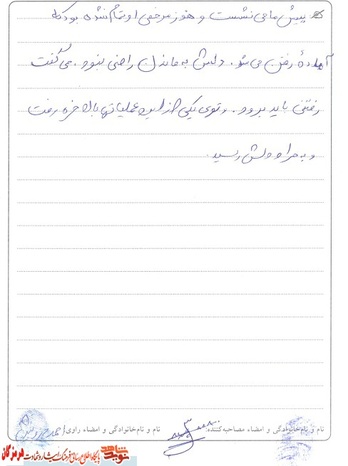 پیش ما می نشست و هنوز مرخصی او تمام نشده بود که
آماده رفتن می شد. دلش به ماندن راضی نبود. می گفت
رفتنی باید برود. و توی یکی از این عملیاتها بالاخره رفت
و به مراد دلش رسید.
نام و نام‌خانوادگی و امضاء مصاحبه‌کننده: نام و نام‌خانوادگی و امضاء راوی: